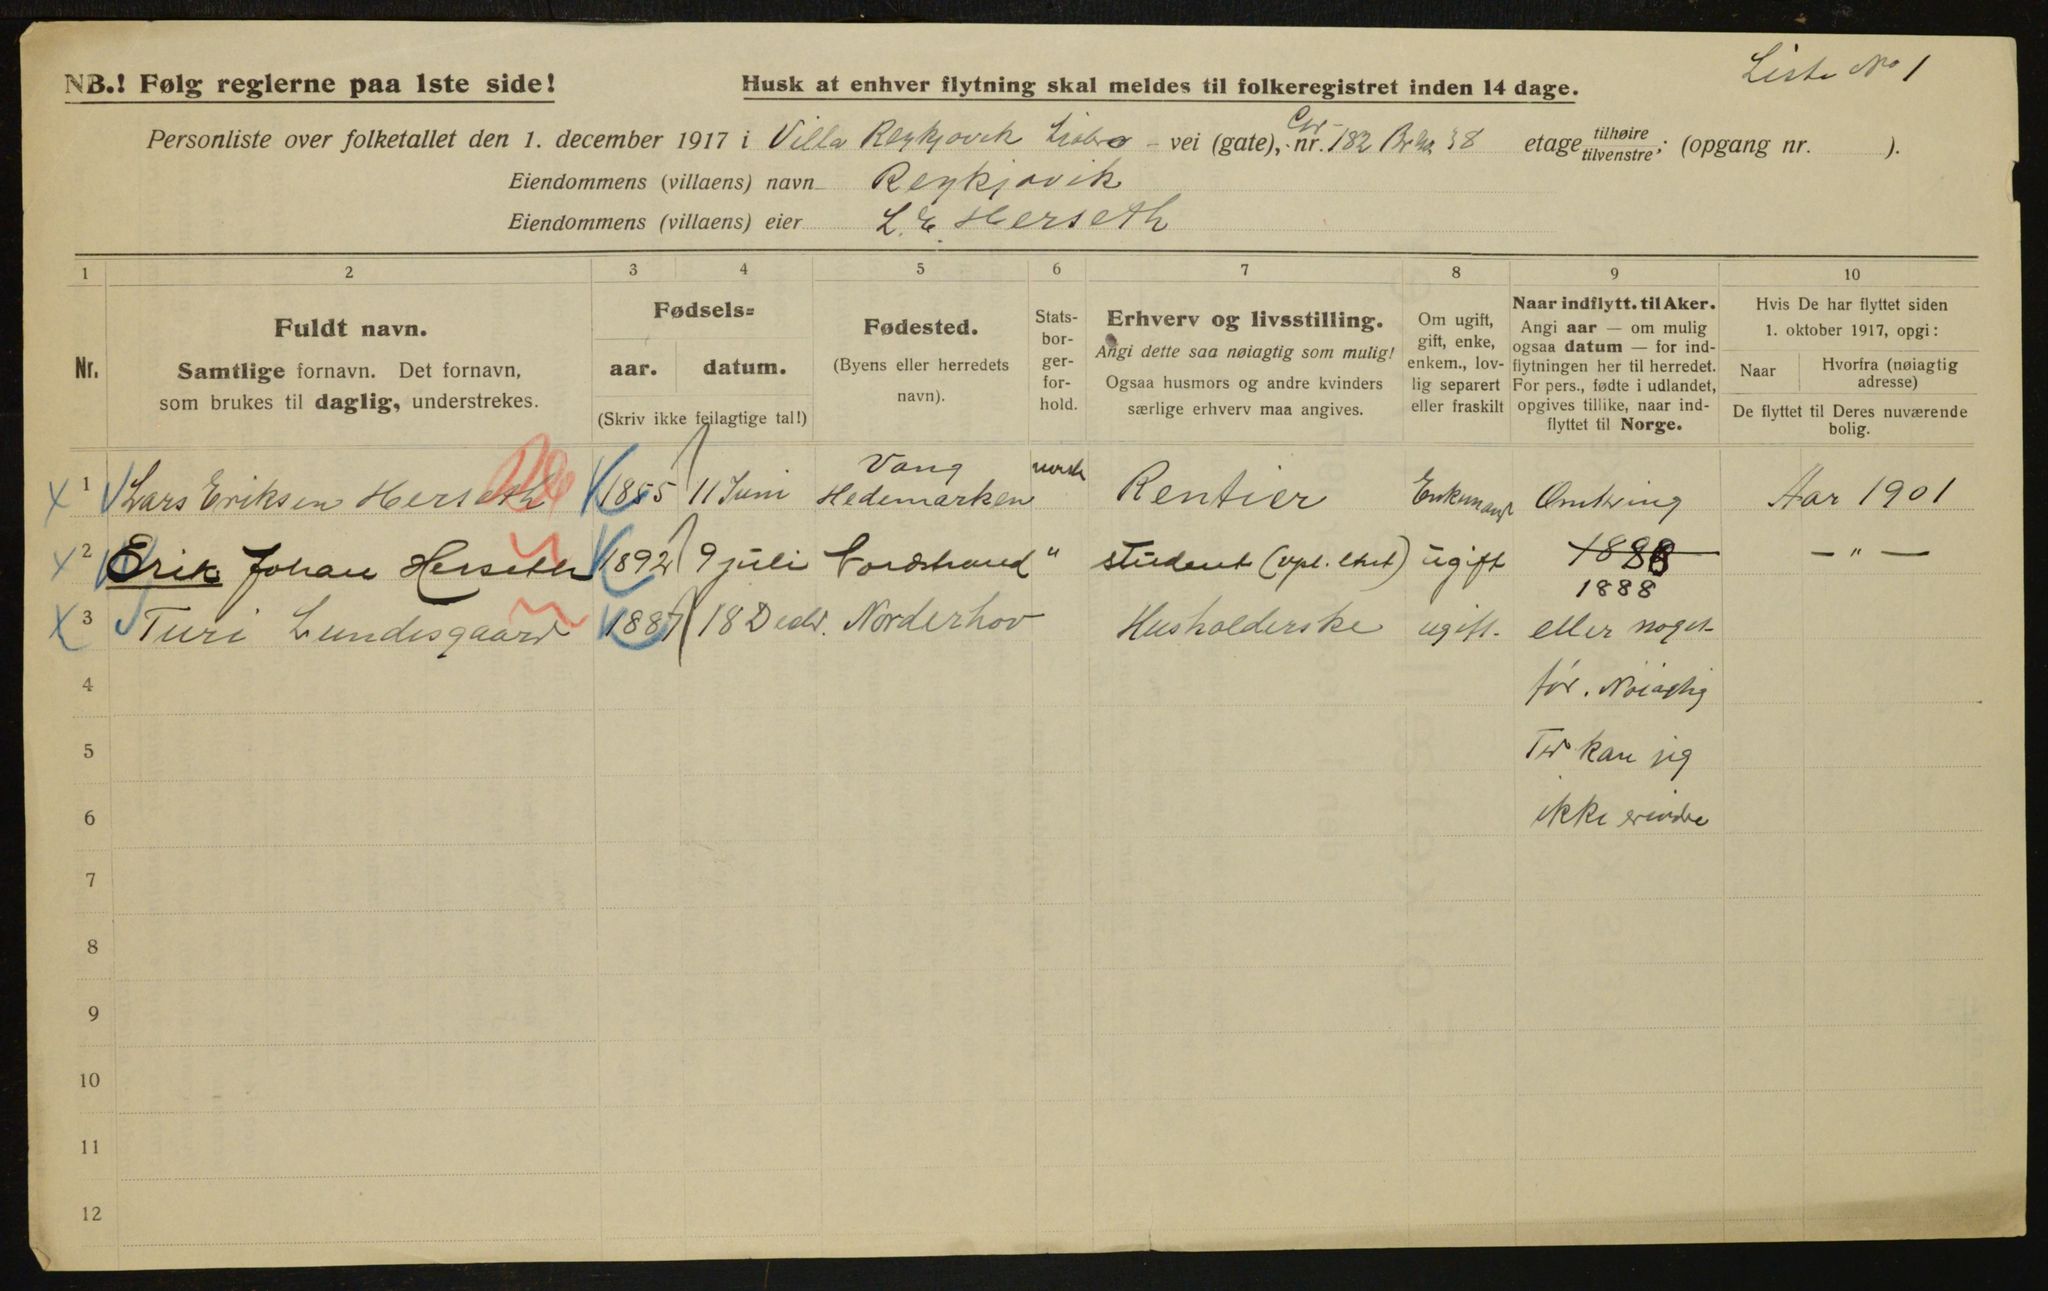 Liste No 1
NB.! Følg reglerne paa 1ste side!
Husk at enhver flytning skal meldes til folkeregistret inden 14 dage.
Personliste over folketallet den 1. december 1917 i Villa Reykjavik Ljabro - vei (gate), nr. 182 38 etage tilhøire/tilvenstre; (opgang nr. ).
Eiendommens (villaens) navn Reykjavik
Eiendommens (villaens) eier L. E. Herseth
1 2 3 4 5 6 7 8 9 10
Nr.
Fuldt navn.
Samtlige fornavn. Det fornavn,
som brukes til daglig, understrekes.
Fødsels=
aar. datum.
(Skriv ikke feilagtige tal!)
Fødested.
(Byens eller herredets
navn).
Stats-
bor-
ger-
for-
hold.
Erhverv og livsstilling.
Angi dette saa nøiagtig som mulig!
Ogsaa husmors og andre kvinders
særlige erhverv maa angives.
Om ugift,
gift, enke,
enkem., lov-
lig separert
eller fraskilt
Naar indflytt. til Aker.
Angi aar — om mulig
ogsaa datum — for ind-
flytningen her til herredet.
For pers., fødte i utlandet,
opgives tillike, naar ind-
flyttet til Norge.
Hvis De har flyttet siden
1. oktober 1917, opgi:
Naar
Hvorfra (nøiagtig
adresse)
De flyttet til Deres nuværende
bolig.
1 Lars Eriksen Herseth 1855 11 Juni Vang Hedemarken norsk Rentier Enkemand Omkring Aar 1901
2 Erik Johan Herseth 1892 9 juli Nordstrand " student (vpl. ) ugift 1888 — " —
1888
3 Turi Lundesgaard 1887 18 Decbr. Norderhov Husholderske ugift. eller noget
4 før. Nøiagtig
5 Tid kan jeg
6 ikke erindre
7
8
9
10
11
12